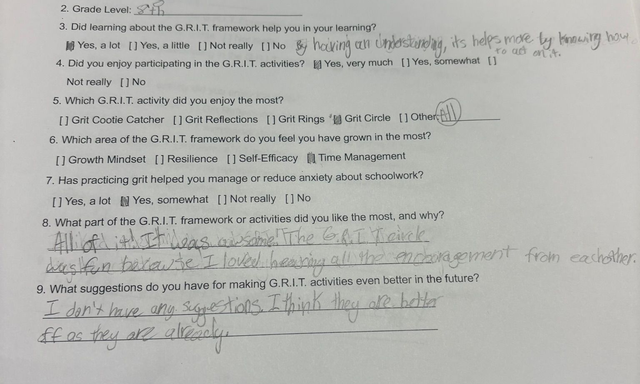 2. Grade Level: 8th
3. Did learning about the G.R.I.T. framework help you in your learning?
[ ] Yes, a lot [ ] Yes, a little [ ] Not really [ ] No By having an understanding, its helps more by knowing how
to act on it.
4. Did you enjoy participating in the G.R.I.T. activities? [ ] Yes, very much [ ] Yes, somewhat [ ]
Not really [ ] No
5. Which G.R.I.T. activity did you enjoy the most?
[ ] Grit Cootie Catcher [ ] Grit Reflections [ ] Grit Rings [ ] Grit Circle [ ] Other: All
6. Which area of the G.R.I.T. framework do you feel you have grown in the most?
[ ] Growth Mindset [ ] Resilience [ ] Self-Efficacy [ ] Time Management
7. Has practicing grit helped you manage or reduce anxiety about schoolwork?
[ ] Yes, a lot [ ] Yes, somewhat [ ] Not really [ ] No
8. What part of the G.R.I.T. framework or activities did you like the most, and why?
All of it! It was awesome! The G.R.I.T circle
was fun because I loved hearing all the encouragement from eachother.
9. What suggestions do you have for making G.R.I.T. activities even better in the future?
I don't have any suggestions. I think they are better
ff as they are already.